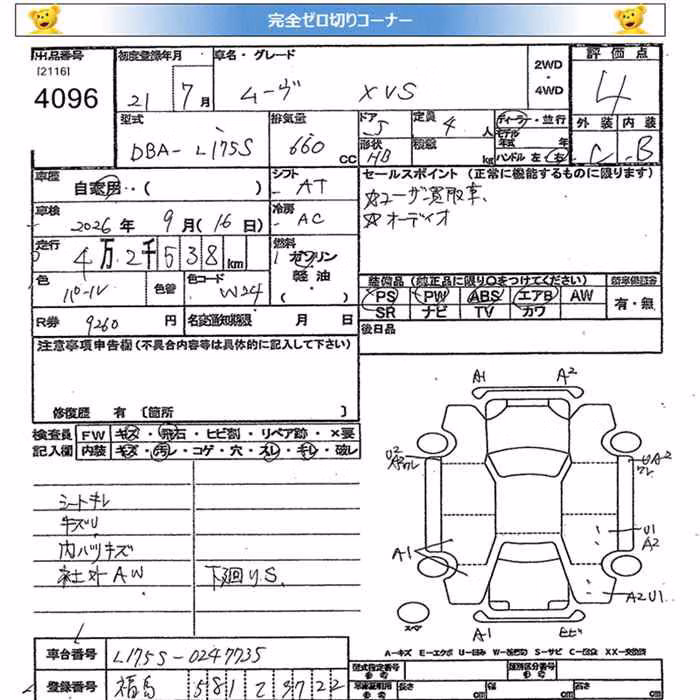 完全ゼロ切りコーナー
出品番号 初度登録年月 車名・グレード 2WD・4WD 評価点
[2116]
4096
21 7月 ムーヴ XVS 4
型式 排気量 ドア 定員 ディーラー・並行 外装 内装
DBA- L175S 660 CC 5 4 人 モデル年式 年 C B
形状 HB 積載 kg ハンドル 左 右
車歴 自家用・・( ) シフト AT セールスポイント (正常に機能するものに限ります)
☆ユーザー買取車、
車検 2026年 9月(16日) 冷房 AC ☆オーディオ
走行 4万2千538km 燃料 ガソリン 軽油 ( )
色 パール 色替 色コード W24
装備品 (純正品に限り○をつけてください) 新車保証書
PS PW ABS エアB AW 有・無
SR ナビ TV カワ
R券 9260円 名変通知期限 月 日 後日品
注意事項申告欄 (不具合内容等は具体的に記入して下さい)
修復歴 有 [箇所 ]
検査員 FW キズ・飛石・ヒビ割・リペア跡・×要
記入欄 内装 キズ・汚レ・コゲ・穴・スレ・キレ・破レ
シートキレ
キズU
内ハツリキズ
社外AW 下廻りS.
A1 A2
U2 UA2
A2ワレ ワレ
A1 U1
A2
A2U1
スペア
A1 ヒビ
A-キズ E-エクボ U-凹み W-波切り S-サビ C-腐食 X-交換 XX-交換済
車台番号 L175S-0247735
型式指定番号 参考 類別区分番号 参考
登録番号 福島 581 て 3722
車庫証明用 参考 長さ cm cm cm